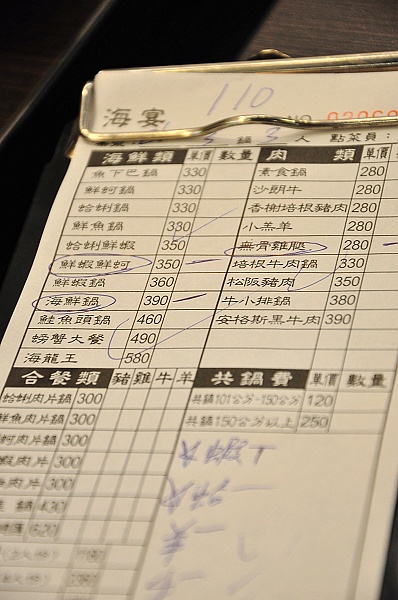 110
海宴
鍋 3 人 點菜員：
海鮮類 單價 數量 肉 類 單價 數
魚下巴鍋 330 素食鍋 280
鮮蚵鍋 330 沙朗牛 280
蛤蜊鍋 330 香榭培根豬肉 280
鮮魚鍋 330 小羔羊 280
蛤蜊鮮蝦 350 無骨雞腿 280 一
鮮蝦鮮蚵 350 一 培根牛肉鍋 330
鮮蝦鍋 360 松阪豬肉 350
海鮮鍋 390 一 牛小排鍋 380
鮭魚頭鍋 460 安格斯黑牛肉 390
螃蟹大餐 490
海龍王 580
合餐類 豬 雞 牛 羊 共鍋費 單價 數量
蛤蜊肉片鍋 300 共鍋101公分-150公分 120
鮮魚肉片鍋 300 共鍋150公分以上 250
蚵肉片鍋 300
蝦肉片 300
肉片 300
鍋 430
620